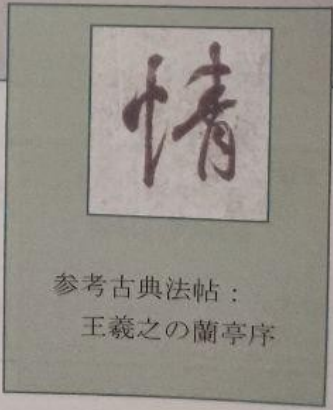 情
参考古典法帖：
王羲之の蘭亭序